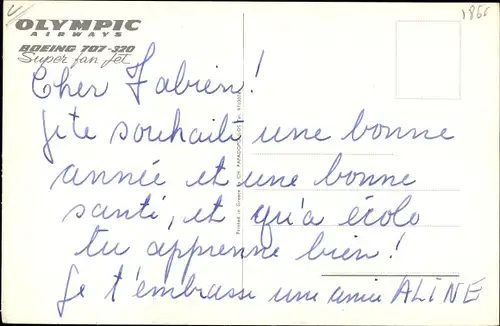 OLYMPIC
AIRWAYS
BOEING 707-320
Super fan Jet
Cher Fabien!
Je te souhaite une bonne
année et une bonne
santé, et qu'à école
tu apprenne bien!
Je t'embrasse une amie ALINE
Printed in Greece